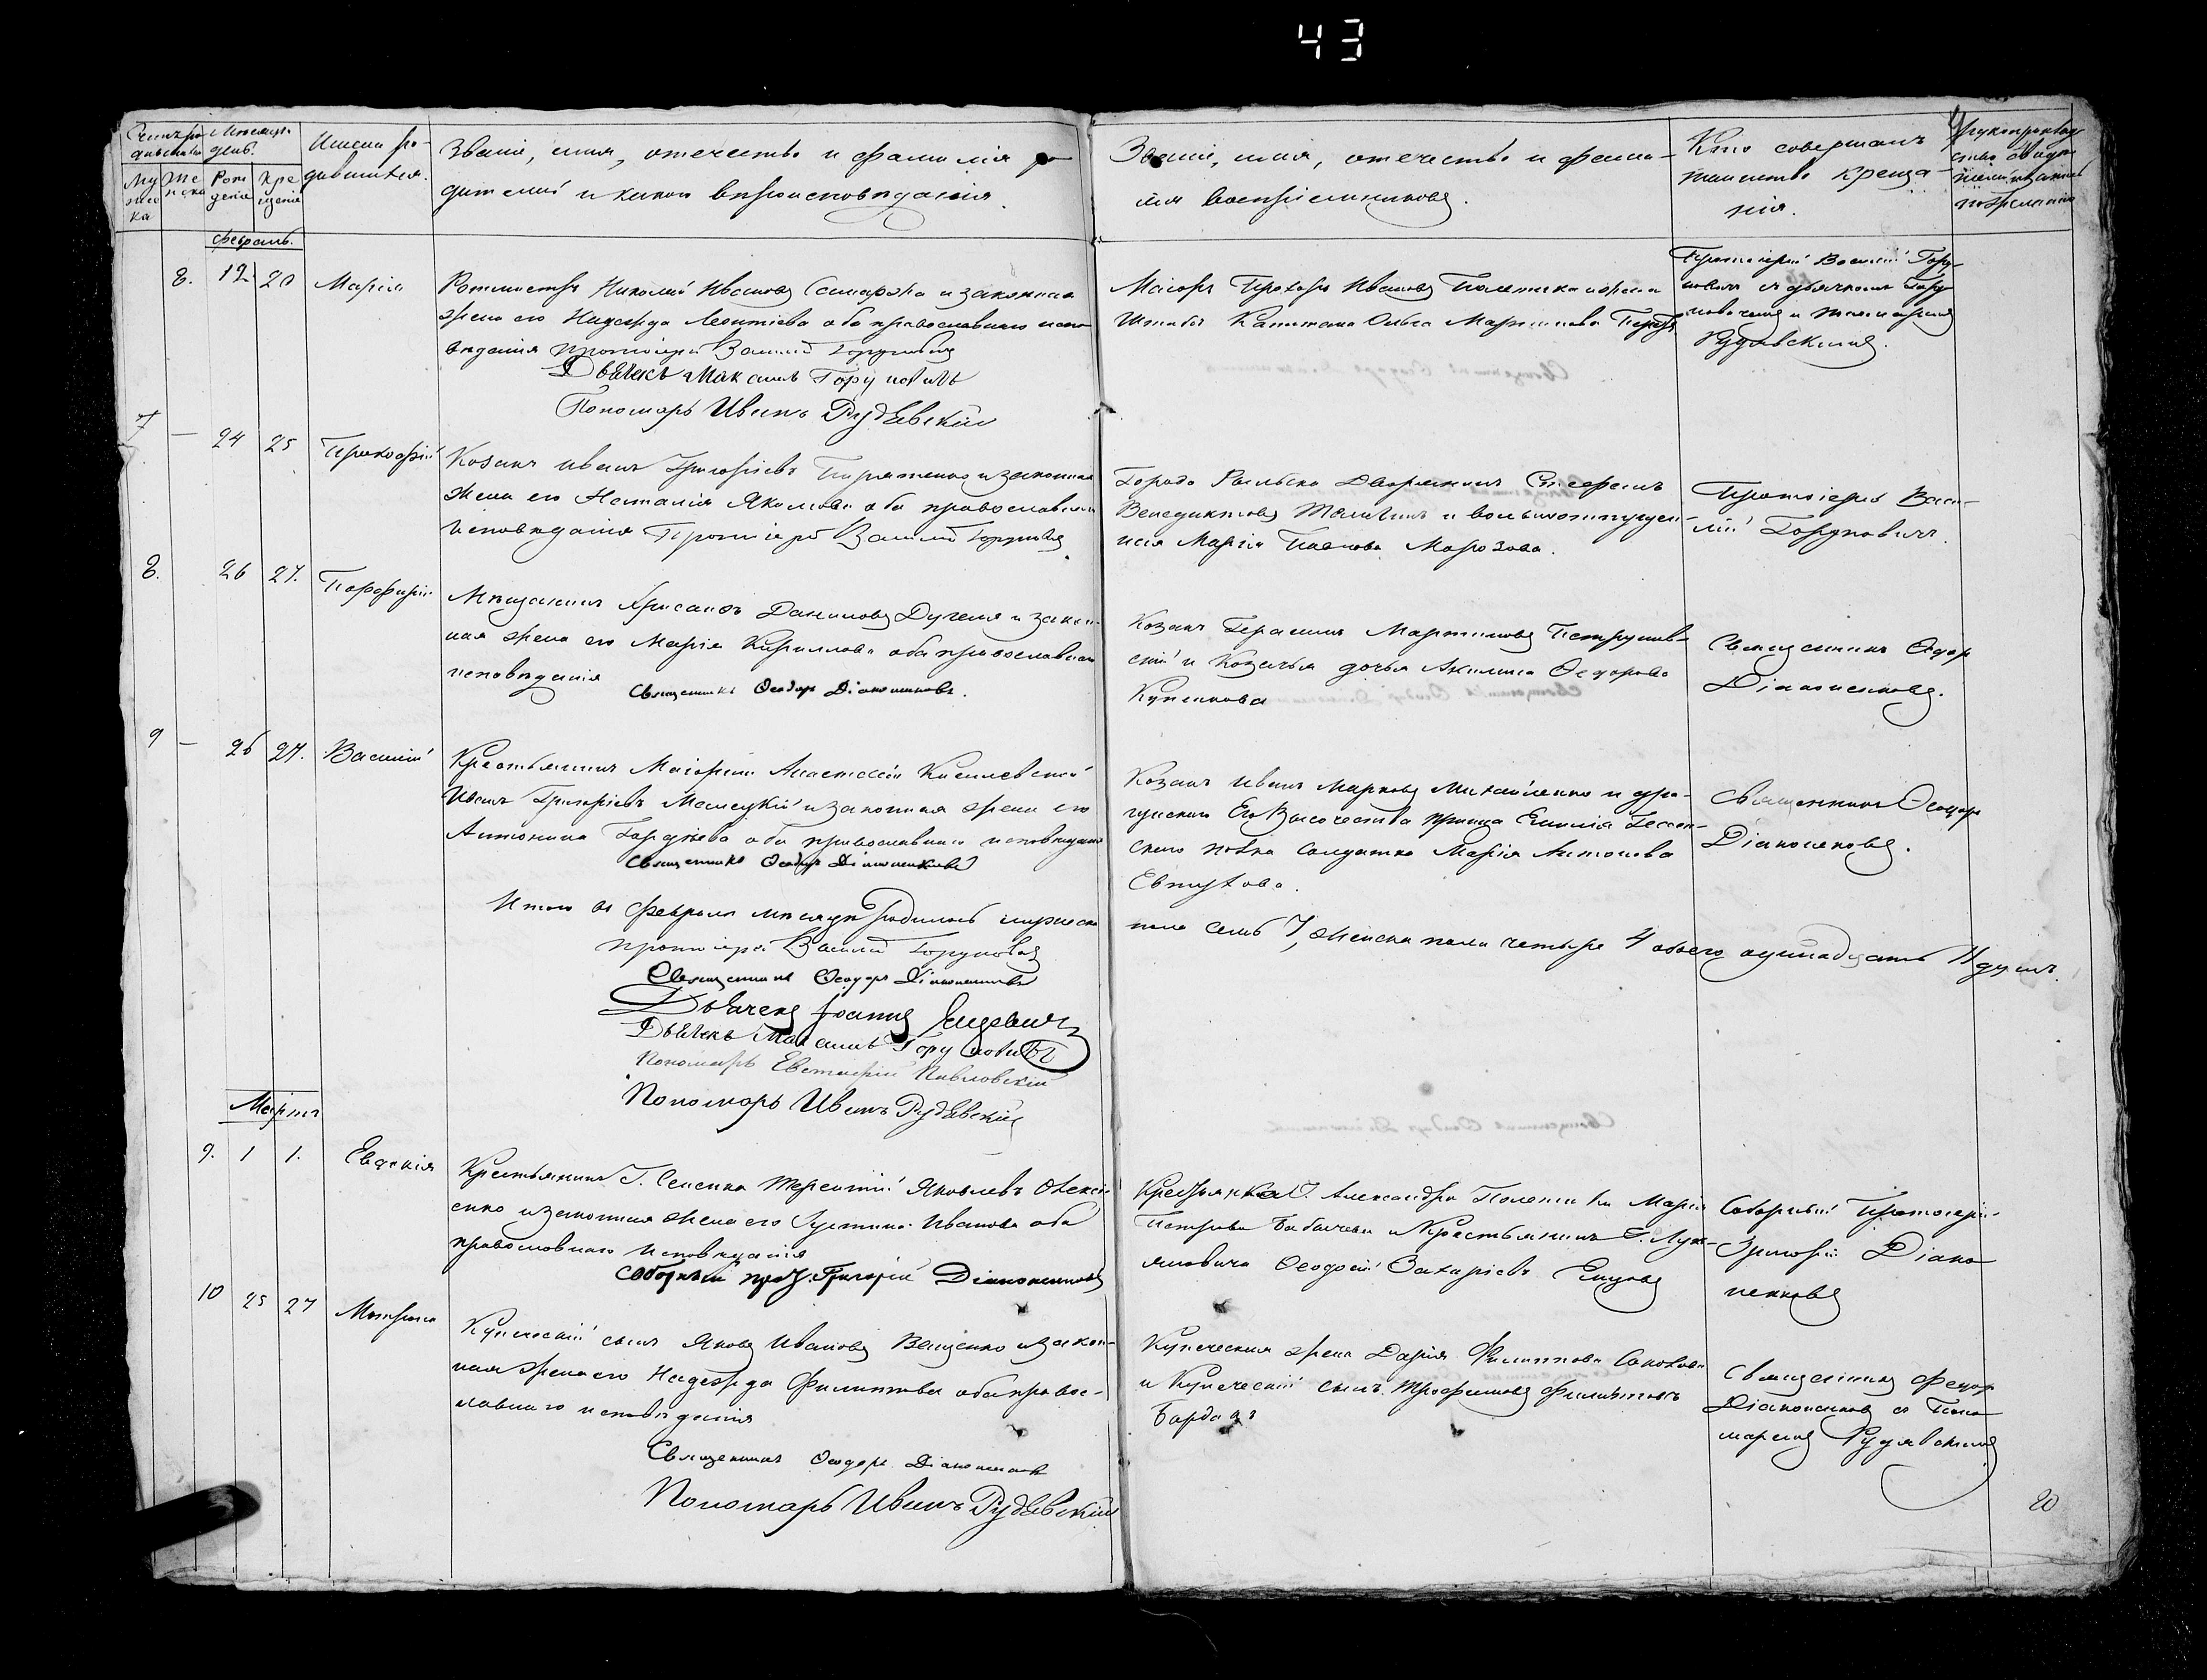 43
Счетъ ро- Мѣсяцъ Имена ро- Званіе, имя, отечество и фамилія ро- Званіе, имя, отечество и фами- Кто совершалъ Рукоприклад
дившихся день. дившихся. дителей и какого вѣроисповѣданія. лія воспріемниковъ. таинство креще- ство
Му Же Рож Кре нія.
жеска нска деніе щеніе
Февраль.
8. 12 20 Марія
Ротмистръ Николай Ивановъ и законная
жена его Надежда Леонтіева оба православнаго испо
вѣданія протоіерей Василій Горуновичъ
Дьячекъ Максимъ Горуновичъ
Пономарь Иванъ Рудѣвскій
Маіоръ Иванов Полетика и жена
Штабсъ Капитана Ольга Мартинова
Протоіерей Василій Гору-
новичъ съ дьячкомъ Гору
новичемъ и пономаремъ
Рудѣвскимъ.
7 — 24 25 Прокофій
Козакъ Иванъ Григоріевъ и законная
жена его Наталія Якимова оба православнаго
исповѣданія Протоіерей Василій Горуновичъ
Города Рыльска Дворянинъ Стефанъ
Венедиктовъ и вольноотпущен-
ная Марія Павлова Марозова.
Протоіерей Васи-
лій Горуновичъ.
8. 26 27. Порфирій
Мѣщанинъ Хрисанфъ Даниловъ и закон-
ная жена его Марія Кириллова оба православнаго
исповѣданія
Священникъ Ѳеодоръ Діаконенковъ.
Козакъ Герасимъ Мартиновъ Петрушев-
скій и Козачья дочья Акилина Ѳедорова
Купенкова
Священникъ Ѳедор
Діаконенковъ.
9 — 26 27. Василій
Крестьянинъ Маіорши Анастасіи Киселевской
Иванъ Григоріевъ Малецкій и законная жена его
Антонина Гордѣева оба православнаго исповѣданія
Священникъ Ѳеодоръ Діаконенковъ
Козакъ Иванъ Марковъ Михайленко и дра-
гунскаго Его Высочества принца Емилія Гессен-
скаго полка солдатка Марія Антонова
Евтухова.
Священникъ Ѳеодоръ
Діаконенковъ.
Итого въ февралѣ мѣсяцѣ родилось мужеска
пола семь 7, женска пола четыре 4 обоего одинадцать 11 душъ.
протоіерей Василій Горуновичъ
Священникъ Ѳеодоръ Діаконенковъ
Дьячекъ Іоаннъ
Дьячекъ Максимъ Горуновичъ
Пономарь Евстафій Павловскій
Пономарь Иванъ Рудѣвскій
Мартъ
9. 1 1. Евдокія
Крестьянинъ Г. Сененка Терентій Яковлевъ Олексі
енко и законная жена его Іустина Иванова оба
православнаго исповѣданія
Соборный прот. Григорій Діаконенковъ
Крестьянка Г. Александра Полетики Марія
Петрова Бабичева и Крестьянинъ Г. Лук-
яновича Ѳеодосій Захаріевъ
Соборный Протоіерей
Григорій Діако
ненковъ
10 25 27 Матрона
Купеческій сынъ Яковъ Ивановъ Ващенко и закон-
ная жена его Надежда Филиппова оба право-
славнаго исповѣданія
Священникъ Ѳеодоръ Діаконенковъ
Пономарь Иванъ Рудѣвскій
Купеческая жена Дарія Филиппова
и Купеческій сынъ Трофимовъ Филипповъ
Бардакъ
Священникъ Федор
Діаконенковъ съ Поно
маремъ Рудявскимъ
20